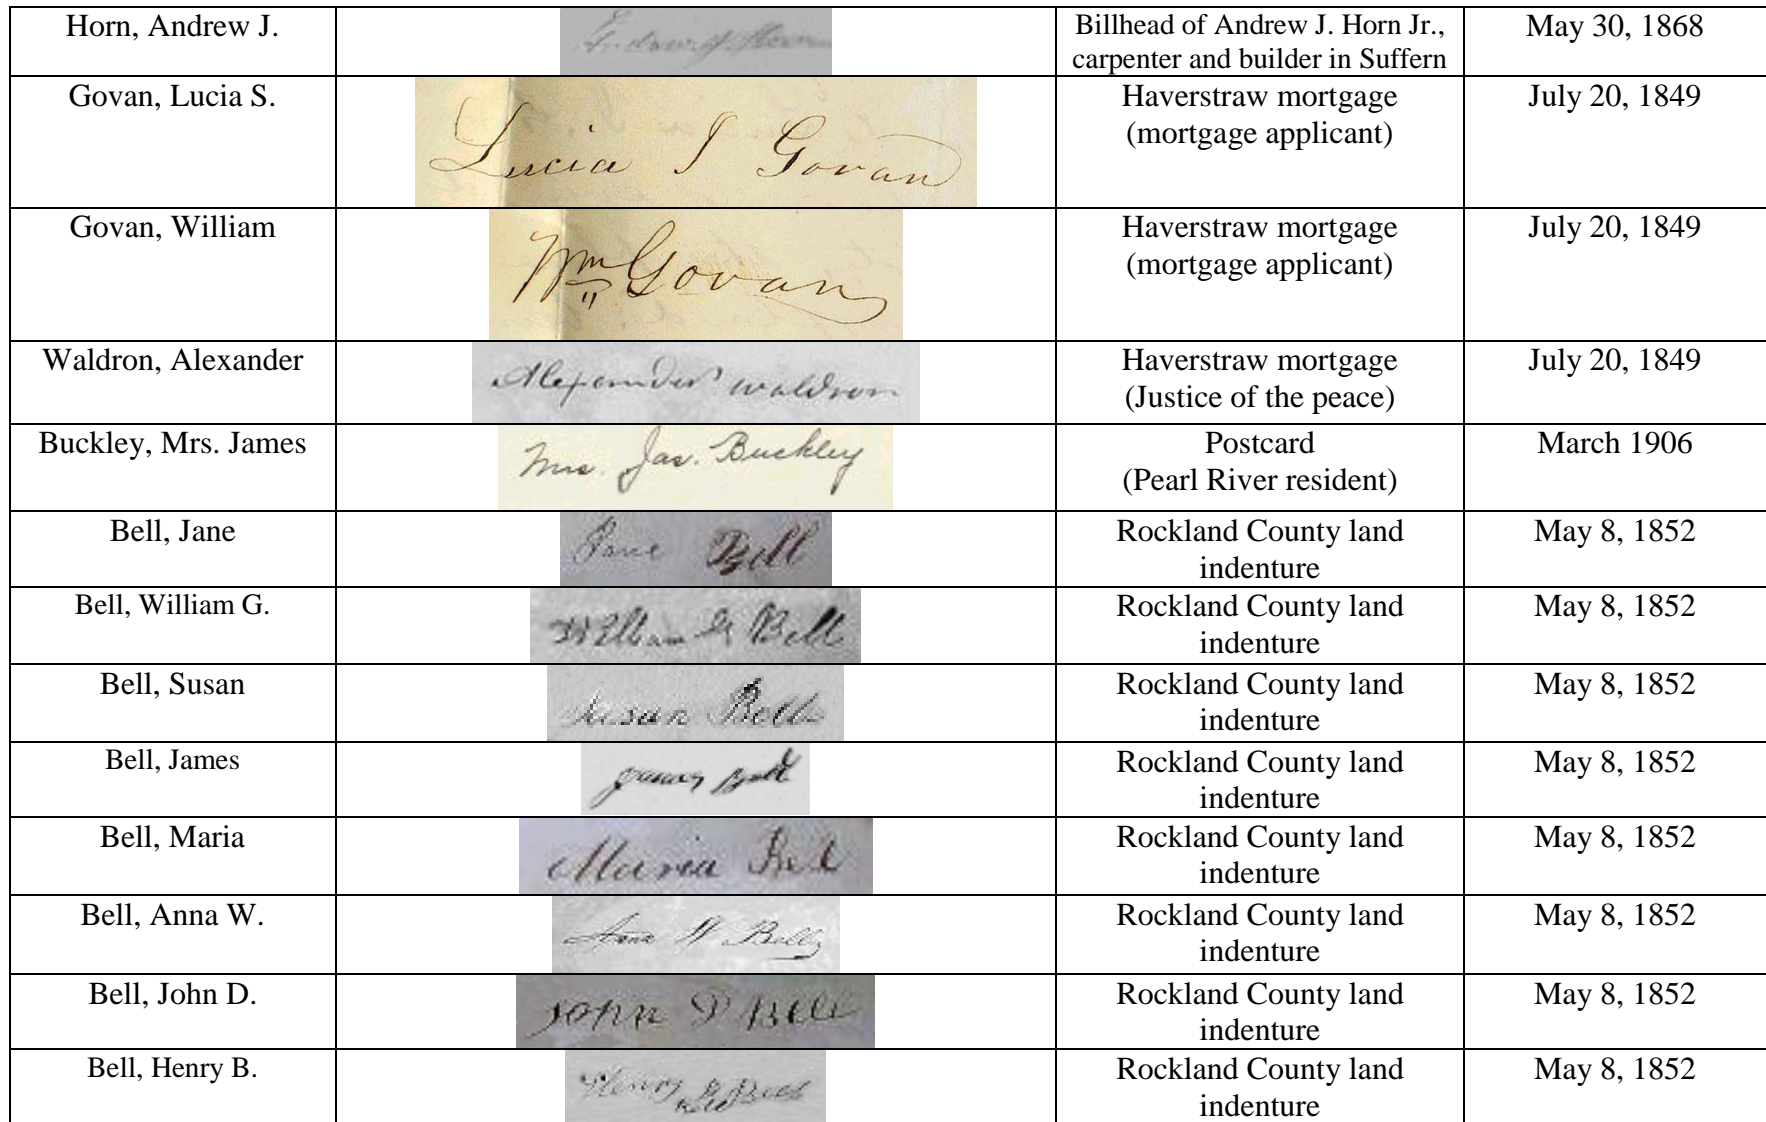 Horn, Andrew J.
Andrew J. Horn
Billhead of Andrew J. Horn Jr.,
carpenter and builder in Suffern
May 30, 1868
Govan, Lucia S.
Lucia S Govan
Haverstraw mortgage
(mortgage applicant)
July 20, 1849
Govan, William
Wm Govan
Haverstraw mortgage
(mortgage applicant)
July 20, 1849
Waldron, Alexander
Alexander waldron
Haverstraw mortgage
(Justice of the peace)
July 20, 1849
Buckley, Mrs. James
Mrs. Jas. Buckley
Postcard
(Pearl River resident)
March 1906
Bell, Jane
Jane Bell
Rockland County land
indenture
May 8, 1852
Bell, William G.
William G Bell
Rockland County land
indenture
May 8, 1852
Bell, Susan
Susan Bell
Rockland County land
indenture
May 8, 1852
Bell, James
James Bell
Rockland County land
indenture
May 8, 1852
Bell, Maria
Maria Bell
Rockland County land
indenture
May 8, 1852
Bell, Anna W.
Anna W Bell
Rockland County land
indenture
May 8, 1852
Bell, John D.
John D Bell
Rockland County land
indenture
May 8, 1852
Bell, Henry B.
Henry B Bell
Rockland County land
indenture
May 8, 1852